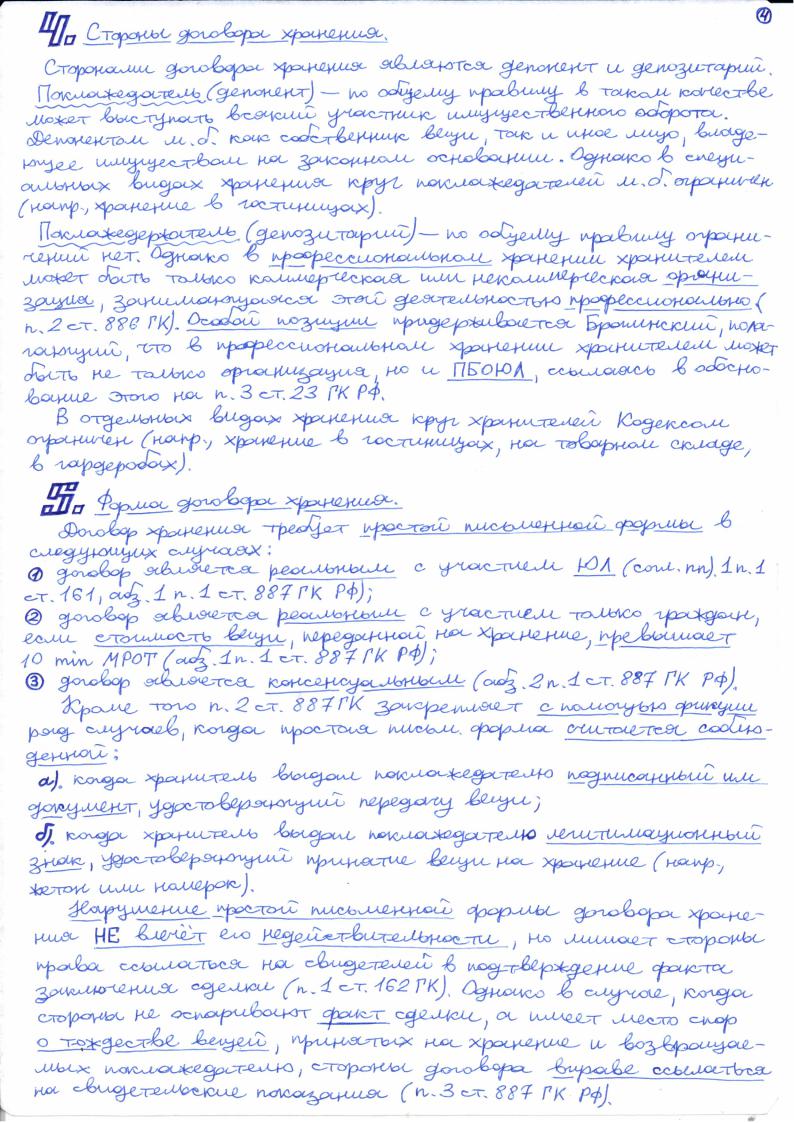 4
4. Стороны договора хранения.
Сторонами договора хранения являются депонент и депозитарий.
Поклажедатель (депонент) — по общему правилу в таком качестве
может выступать всякий участник имущественного оборота.
Депонентом м.б. как собственник вещи, так и иное лицо, владе-
ющее имуществом на законном основании. Однако в специ-
альных видах хранения круг поклажедателей м.б. ограничен
(напр., хранение в гостиницах).
Поклажедержатель (депозитарий) — по общему правилу ограни-
чений нет. Однако в профессиональном хранении хранителем
может быть только коммерческая или некоммерческая органи-
зация, занимающаяся этой деятельностью профессионально (
п. 2 ст. 886 ГК). Особой позиции придерживается Брагинский, пола-
гающий, что в профессиональном хранении хранителем может
быть не только организация, но и ПБОЮЛ, ссылаясь в обосно-
вание этого на п. 3 ст. 23 ГК РФ.
В отдельных видах хранения круг хранителей Кодексом
ограничен (напр., хранение в гостиницах, на товарном складе,
в гардеробах).
5. Форма договора хранения.
Договор хранения требует простой письменной формы в
следующих случаях:
① договор является реальным с участием ЮЛ (согл. пп). 1 п. 1
ст. 161, абз. 1 п. 1 ст. 887 ГК РФ);
② договор является реальным с участием только граждан,
если стоимость вещи, переданной на хранение, превышает
10 min МРОТ (абз. 1 п. 1 ст. 887 ГК РФ);
③ договор является консенсуальным (абз. 2 п. 1 ст. 887 ГК РФ).
Кроме того п. 2 ст. 887 ГК закрепляет с помощью фикции
ряд случаев, когда простая письм. форма считается соблю-
денной:
а). когда хранитель выдал поклажедателю подписанный им
документ, удостоверяющий передачу вещи;
б). когда хранитель выдал поклажедателю легитимационный
знак, удостоверяющий принятие вещи на хранение (напр.,
жетон или номерок).
Нарушение простой письменной формы договора хране-
ния НЕ влечёт его недействительности, но лишает стороны
права ссылаться на свидетелей в подтверждение факта
заключения сделки (п. 1 ст. 162 ГК). Однако в случае, когда
стороны не оспаривают факт сделки, а имеет место спор
о тождестве вещей, принятых на хранение и возвращае-
мых поклажедателю, стороны договора вправе ссылаться
на свидетельские показания (п. 3 ст. 887 ГК РФ).